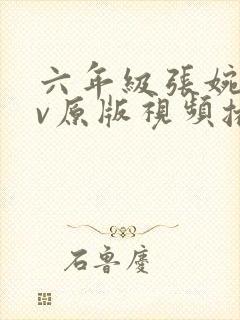 六年級張婉
v原版視頻
石魯慶